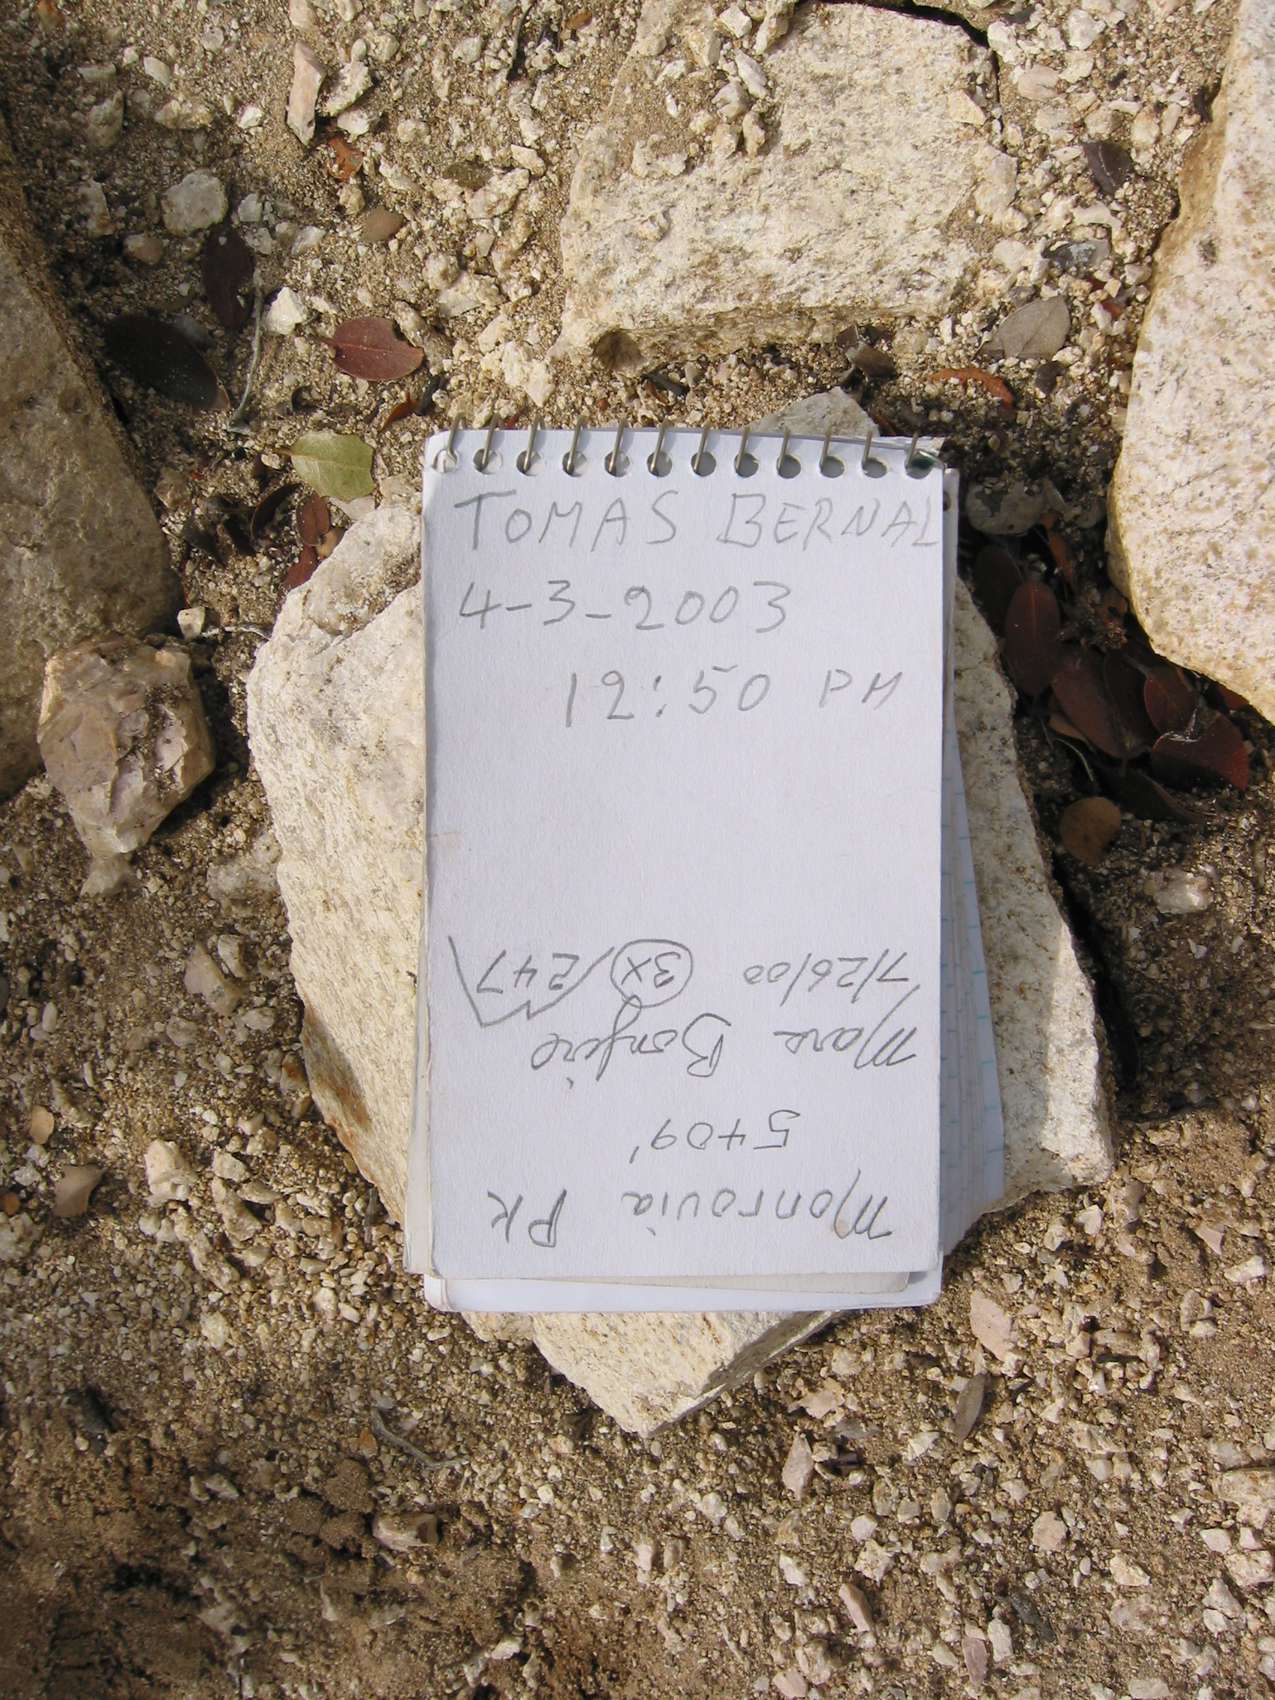 TOMAS BERNAL
4-3-2003
12:50 PM
Monrovia Pk
5409'
Marc Bonfire
7/26/00 3X/247